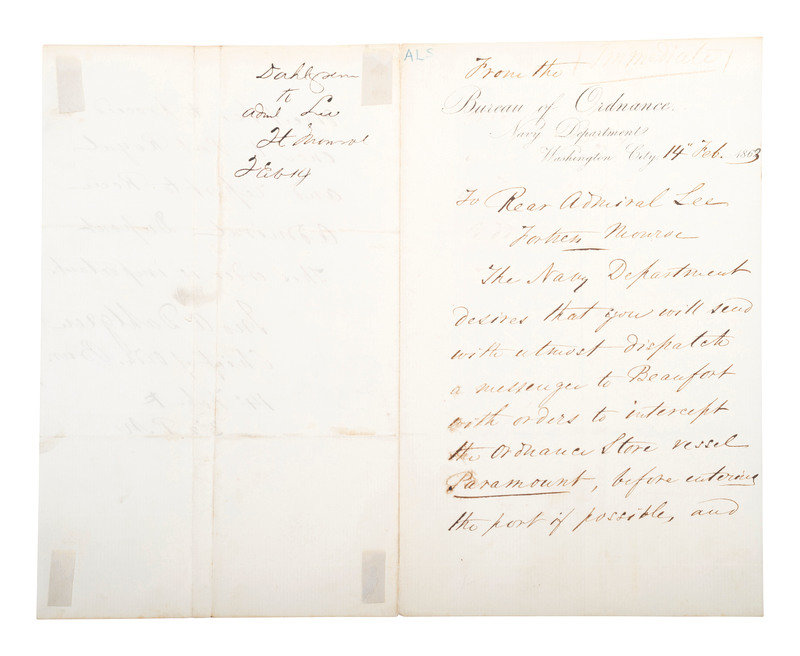 Dahlgren
to
Adml Lee
Ft Monroe
Feb 14
ALS
From the (Immediate)
Bureau of Ordnance.
Navy Department
Washington City, 14" Feb. 1863
To Rear Admiral Lee
Fortress Monroe
The Navy Department
desires that you will send
with utmost dispatch
a messenger to Beaufort
with orders to intercept
the Ordnance Store vessel
Paramount, before entering
the port if possible, and